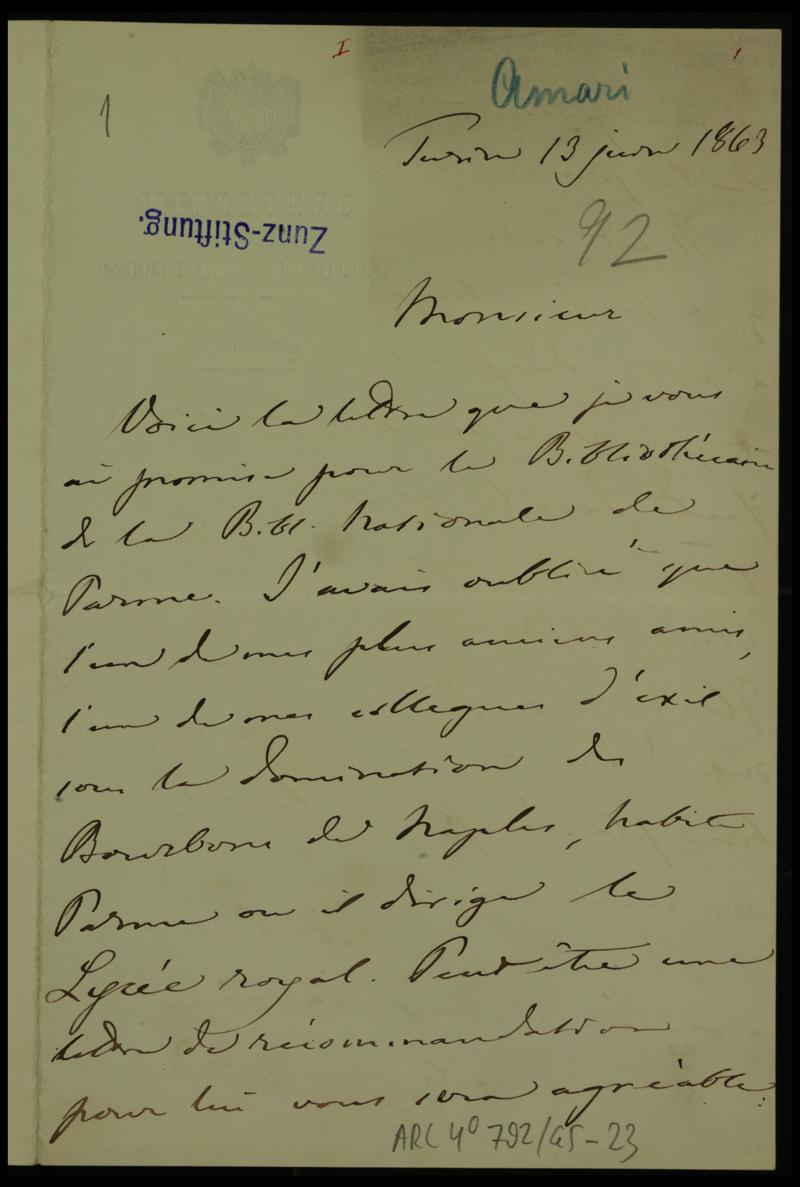 I
Amari
1
Turin 13 juin 1863
MINISTERO
Zunz-Stiftung.
92
ISTRUZIONE PUBBLICA
Monsieur
Voici la lettre que je vous
ai promise pour le Bibliothécaire
de la Bibl. Nationale de
Parme. J'avais oublié que
l'un de mes plus anciens amis,
l'un de mes collegues d'exil
sous la domination des
Bourbons de Naples, habite
Parme ou il dirige le
Lycée royal. Peut être une
lettre de récommandation
pour lui vous sera agréable:
ARC 4º 792/G5-23